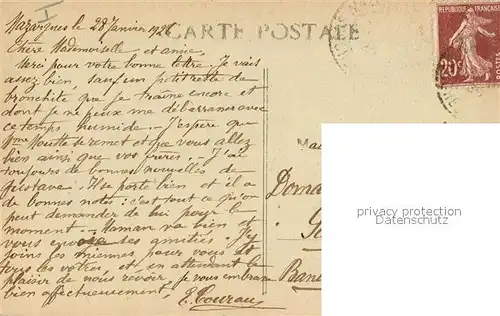 Mazargues le 28 Janvier 1926
CARTE POSTALE
Chère Mademoiselle et amie,
Merci pour votre bonne lettre. Je vais
assez bien, sauf un petit reste de
bronchite que je traîne encore et
dont je ne peux me débarrasser avec
ce temps humide. J'espère que
Mme se remet et que vous allez
bien ainsi que vos frères. J'ai
toujours de bonnes nouvelles de
Gustave. Il se porte bien et il a
de bonnes notes : c'est tout ce qu'on
peut demander de lui pour le
moment. Maman va bien et
vous envoie ses amitiés. J'y
joins les miennes pour vous et
tous les vôtres, et, en attendant le
plaisir de nous revoir, je vous embrasse
bien affectueusement,
REPUBLIQUE FRANÇAISE
20c
POSTES
privacy protection
Datenschutz